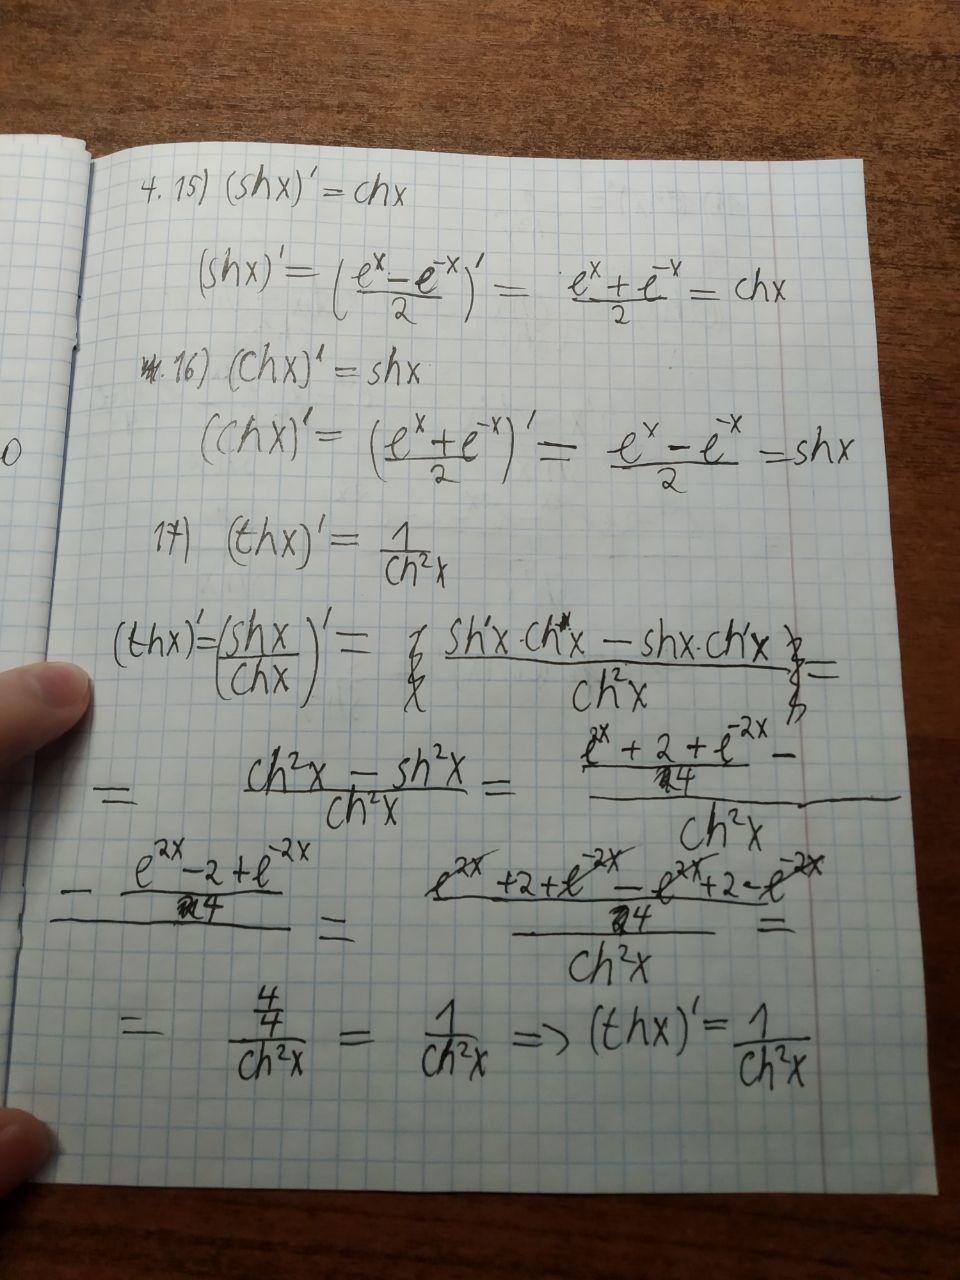 4. 15) (shx)' = chx
(shx)' = ((e^x - e^-x)/2)' = (e^x + e^-x)/2 = chx
16) (chx)' = shx
(chx)' = ((e^x + e^-x)/2)' = (e^x - e^-x)/2 = shx
17) (thx)' = 1/ch²x
(thx)' = (shx/chx)' = (sh'x·chx - shx·ch'x)/ch²x =
= (ch²x - sh²x)/ch²x = ((e^2x + 2 + e^-2x)/4 -
- (e^2x - 2 + e^-2x)/4)/ch²x = ((e^2x + 2 + e^-2x - e^2x + 2 - e^-2x)/4)/ch²x =
= (4/4)/ch²x = 1/ch²x => (thx)' = 1/ch²x